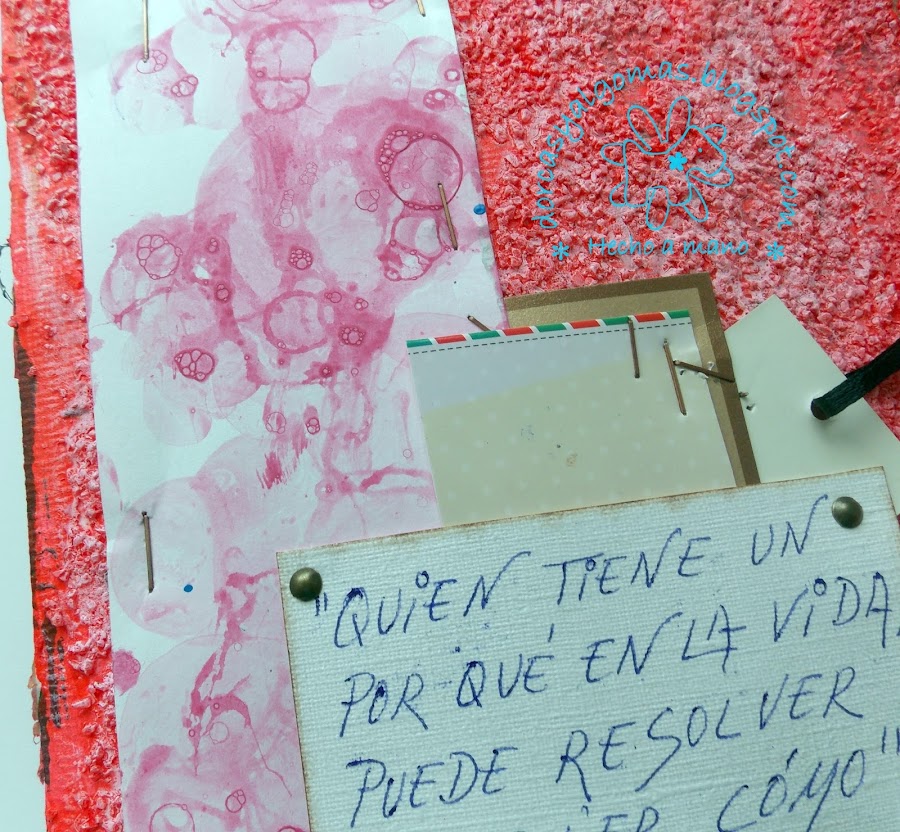 dorcasyalgomas.blogspot.com
* Hecho a mano *
"QUIEN TIENE UN
POR QUÉ EN LA VIDA,
PUEDE RESOLVER
CÓMO"